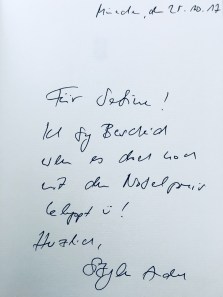 München, den 25.10.17
Für Sabine!
Ich sag Bescheid
wenn es doch noch
mit dem Nobelpreis
klappt ü!
Herzlich,